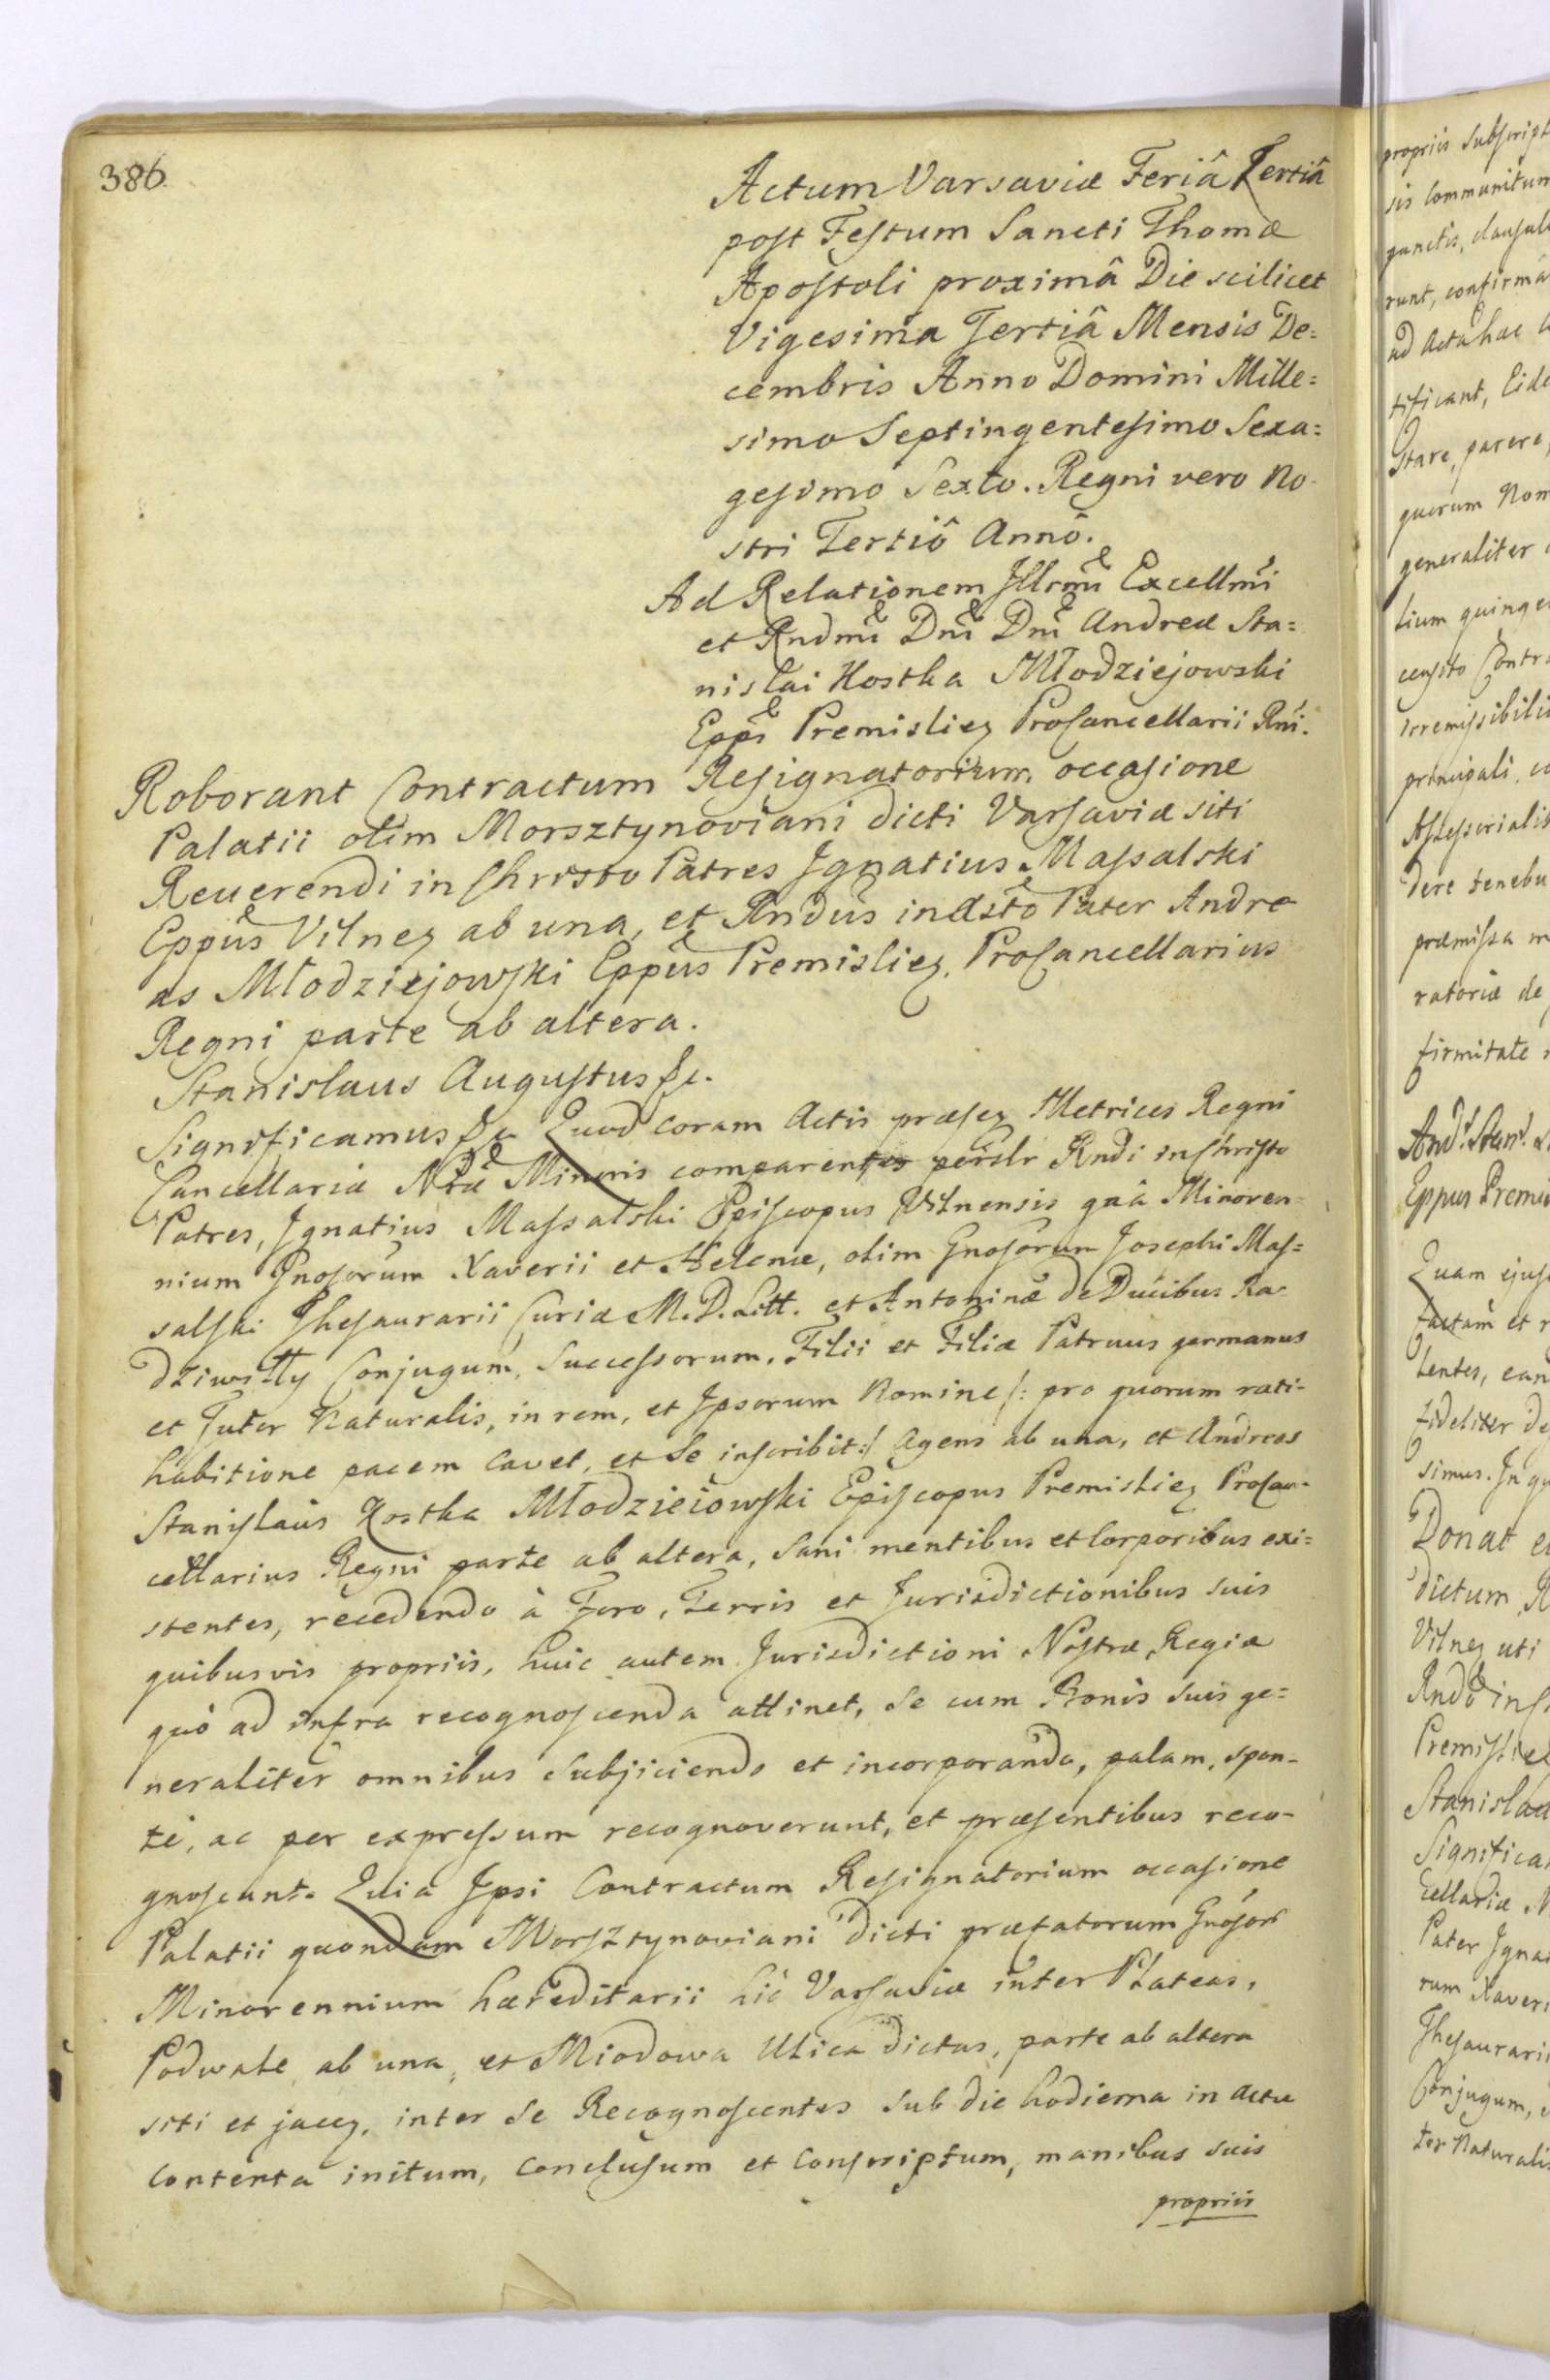 386.
Actum Varsaviæ Feriâ Tertiâ
post Festum Sancti Thomæ
Apostoli proximâ Die scilicet
Vigesima Tertiâ Mensis De=
cembris Anno Domini Mille=
simo Septingentesimo Sexa=
gesimo Sexto. Regni vero No-
stri Tertiô Annô.
Ad Relationem Illrmi Excellmi
et Rndmi Dni Dni Andreæ Sta=
nislai Kostka Młodziejowski
Eppi Premisliez Procancellarii Rni.
Roborant Contractum Resignatorium, occasione
Palatii olim Morsztynoviani dicti Varsaviæ siti
Reuerendi in Christo Patres Ignatius Massalski
Eppus Vilnez ab una, et Rndus in Xsto Pater Andre
as Młodziejowski Eppus Premisliez, Procancellarius
Regni parte ab altera.
Stanislaus Augustus &c.
Significamus &c. Quod coram Actis præsez Metrices Regni
Cancellariæ Nræ Minoris comparentes perslr Rndi in Christo
Patres, Ignatius Massalski Episcopus Vilnensis quâ Minoren=
nium Gnosorum Xaverii et Helenæ, olim Gnosorum Josephi Mas=
salski Thesaurarii Curiæ M. D. Litt. et Antoninæ de Ducibus Ra-
dziwiłły Conjugum, Successorum, Filii et Filiæ Patruus germanus
et Tutor Naturalis, in rem, et Ipsorum Nomine /: pro quorum rati-
habitione pacem cavet, et Se inscribit :/ Agens ab una, et Andreas
Stanislaus Kostka Młodzieiowski Episcopus Premisliez Procan-
cellarius Regni parte ab altera, Sani mentibus et Corporibus exi=
stentes, recedendo à Foro, Terris et Jurisdictionibus suis
quibusvis propriis, huic autem Jurisdictioni Nostræ Regiæ
quò ad infra recognoscenda attinet, Se cum Bonis suis ge=
neraliter omnibus Subjiciendo et incorporando, palam, spon-
tè, ac per expressum recognoverunt, et præsentibus reco-
gnoscunt. Quia Ipsi Contractum Resignatorium occasione
Palatii quondam Morsztynoviani dicti præfatorum Gnosor
Minorennium hæreditarii hic Varsaviæ inter Plateas,
Podwale ab una, et Miodowa Ulica dictas, parte ab altera
siti et jacez, inter Se Recognoscentes Sub die hodierna in Actu
contenta initum, conclusum et Conscriptum, manibus suis
propriis
propriis Subscript
sis Communitum
punctis, clausul
runt, confirma
ad Acta hæc
tificant, Eide
Stare, parere,
quorum Nom
generaliter
lium quinge
censito Contra
irremissibili
principali
Assessorialis
dere tenebu
præmissa
ratoriæ de
firmitate
Eppus Premi
Quam ejus
factam et r
lentes, ean
fideliter de
simus. In qu
Donat
dictum R
Vilnez uti
Rndô in
Premisliez
Stanislau
Significa
cellariæ N
Pater Igna
rum Xaveri
Thesaurari
Conjugum,
tor Naturalis